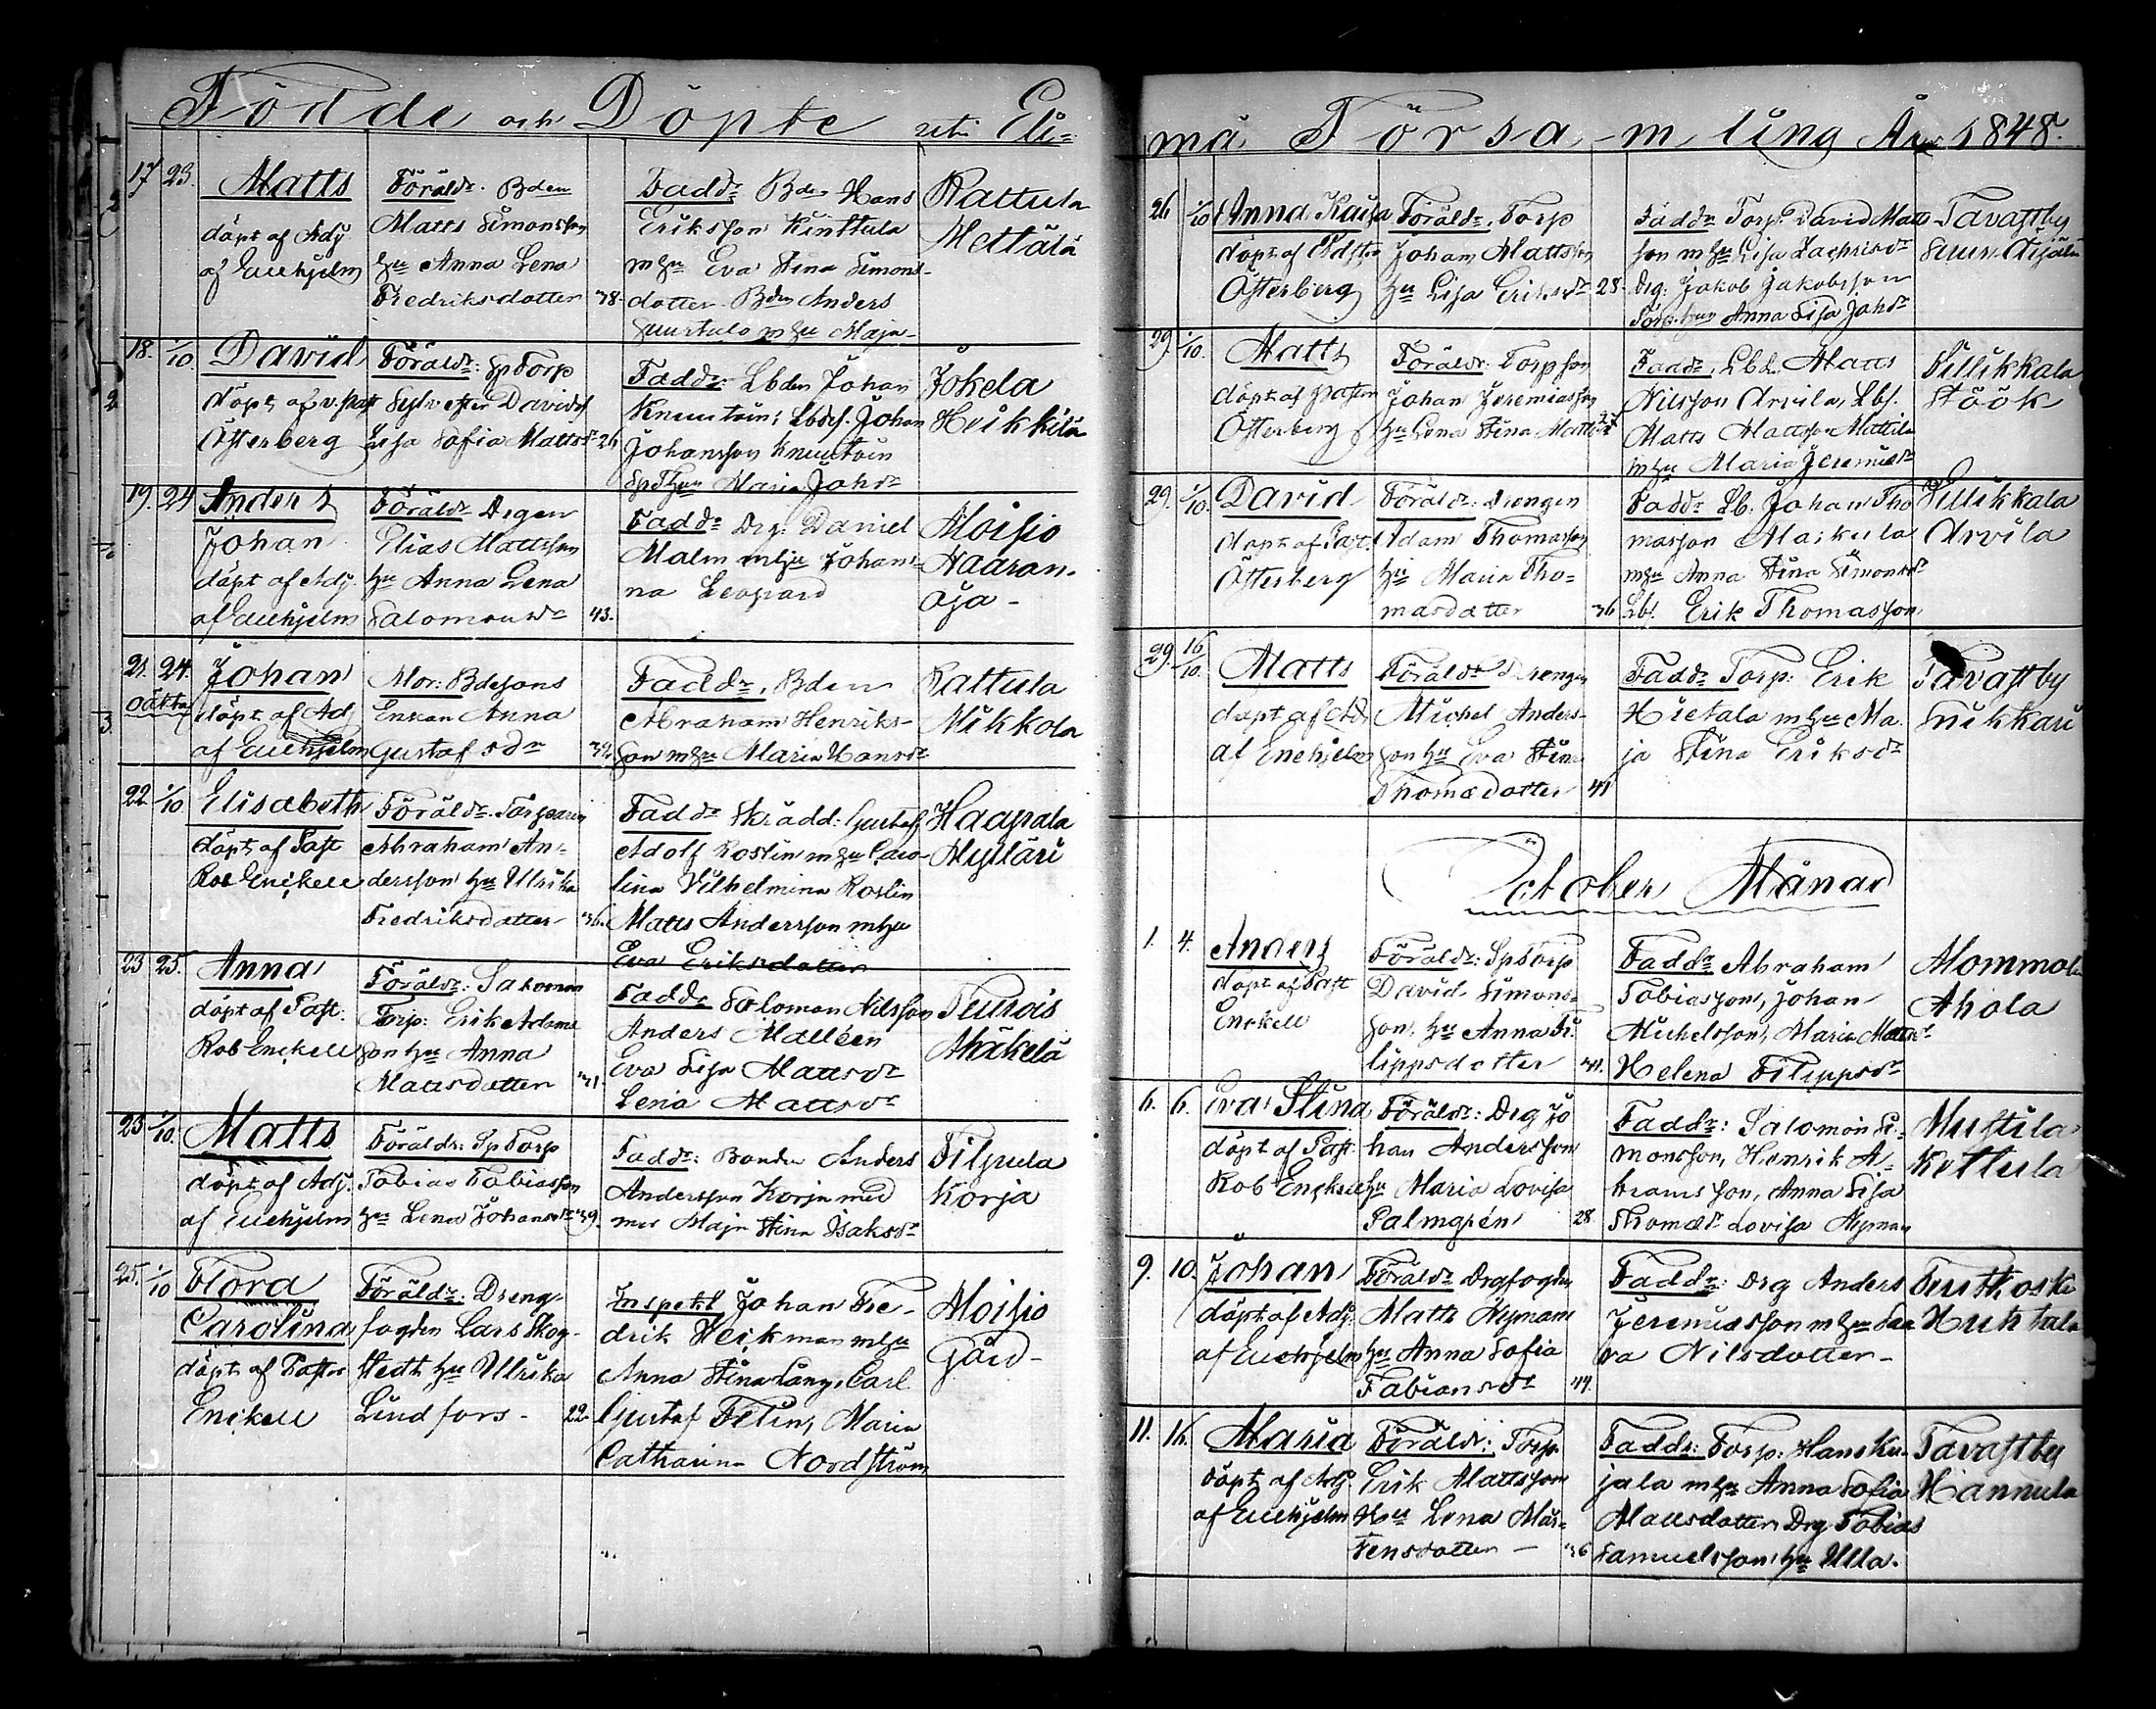 Födde och Döpte uti Eli=
17 23. Matts
döpt af Adj
af Enehjelm
Föräldr. Bden
Matts Simonsson
hu Anna Lena
Fredriksdotter 38.
Faddr Bden Hans
Eriksson Kinttula
m hu Eva Stina Simons-
dotter Bden Anders
m hu Maja
Rattula
Mettälä
18. 1/10 David
döpt af v. past
Österberg
Föräldr: Sp Torp
Sylvester Davids
Lisa Sofia Mattsdr 26
Faddr: Lbden Johan
Knuutoin; Lbdes. Johan
Johansson Knuutoin
Maria Johdr
Jokela
Heikkilä
19. 24 Anders
Johan
döpt af Adj.
af Enehjelm
Föräldr Drgen
Elias Mattsson
hu Anna Lena
Salomonsdr 43.
Faddr Drg. Daniel
Malm m hu Johan-
na Leopard
Moisio
Haaran-
oja -
21. 24. Johan
oäkta
döpt af Adj
af Enehjelm
Mor: Bdesons
Enkan Anna
Gustafsdr 32.
Faddr. Bden
Abraham Henriks-
son m hu Maria Hansdr
Rattula
Mikkola
22. 1/10 Elisabeth
döpt af Past
Rob Enckell
Föräldr. Torparen
Abraham An-
dersson hu Ulrika
Fredriksdotter 36.
Faddr Skrädd: Gustaf
Adolf Roslin m hu Caro-
lina Vilhelmina Roslin
Matts Andersson m hu
Eva Eriksdotter
Haapala
Mylläri
23 25. Anna
döpt af Past.
Rob Enckell
Föräldr:
Torp: Erik Adams
son hu Anna
Mattsdotter 31.
Faddr Salomon Nilsson
Anders Malleen
Eva Lisa Mattsdr
Lena Mattsdr
Teurois
Mäkelä
23 1/10. Matts
döpt af Adj.
af Enehjelm
Föräldr: Sp Torp
Tobias Tobiasson
hu Lena Johansdr 39.
Faddr: Bonden Anders
Andersson Korja med
mor Maja Stina Isaksdr
Filpula
Korja
25. 1/10 Flora
Carolina
döpt af Pastor
Enckell
Föräldr: Dreng-
fogden Lars Skog-
stedt hu Ulrika
Lindfors - 22.
Inspekt Johan Fre-
drik Heikman m hu
Anna Stina Lång, Carl
Gustaf Felin, Maria
Catharina Nordström
Moisio
Gård -
mä Församling År 1848.
26 1/10 Anna Kaisa
döpt af Pastor
Österberg
Föräldr. Torp
Johan Mattsson
hu Lisa Eriksdr 28.
Faddr Torp. David Matts
son m hu Lisa Zachrisdr
Drg. Jakob Jakobsson
Anna Lisa Johdr
Tavastby
29. 1/10. Matts
döpt af Pastor
Österberg
Föräldr: Torpson
Johan Jeremiasson
hu Lena Stina
Faddr. Lbd. Matts
Nilsson Arvila, Lbs.
Matts Mattsson Mattila
m hu Maria Jeremiedr
Villikkala
Stöök
29. 1/10. David
döpt af Past.
Österberg
Föräldr: Drengen
Adam Thomasson
hu Maria Tho=
masdotter 36
Faddr Lb. Johan Tho
masson Maikula
m hu Anna Stina Simonsdr
Lbs. Erik Thomasson
Villikkala
Arvila
29. 16/10. Matts
döpt af Adj
af Enehjelm
Föräldr Drengen
Michel Anders-
son hu Eva Stina
Thomædotter 41
Faddr Torp: Erik
Hietala m hu Ma-
ja Stina Eriksdr
Tavastby
Siikkari
October Månad
1. 4. Anders
döpt af Past
Enckell
Föräldr: Sp Torp
David Simons=
son. hu Anna Fi.
lippsdotter 41.
Faddr Abraham
Tobiasson, Johan
Michelsson, Maria Mattsdr
Helena Filippsdr
Mommola
Ahola
6. 6. Eva Stina
döpt af Past.
Rob Enckell
Föräldr: Drg Jo
han Andersson
hu Maria Lovisa
Palmgrén 28
Faddr: Salomon Si-
monsson, Henrik A-
bramsson, Anna Lisa
Thomædr Lovisa Nyman
Mustila
Kettula
9. 10. Johan
döpt af Adj.
af Enehjelm
Föräldr Drgfogden
Matts Nyman
hu Anna Sofia
Fabiansdr 44.
Faddr: Drg Anders
Jeremiasson m hu Saa
ra Nilsdotter -
Huhtala
11. 16. Maria
döpt af Adj.
af Enehjelm
Föräldr: Torp.
Erik Mattsson
Hu Lena Mår-
tensdotter - 36
Faddr: Torp: Hans Ku-
jala m hu Anna Sofia
Mattsdotter Drg Tobias
Samuelsson hu Ulla.
Tavastby
Hannula